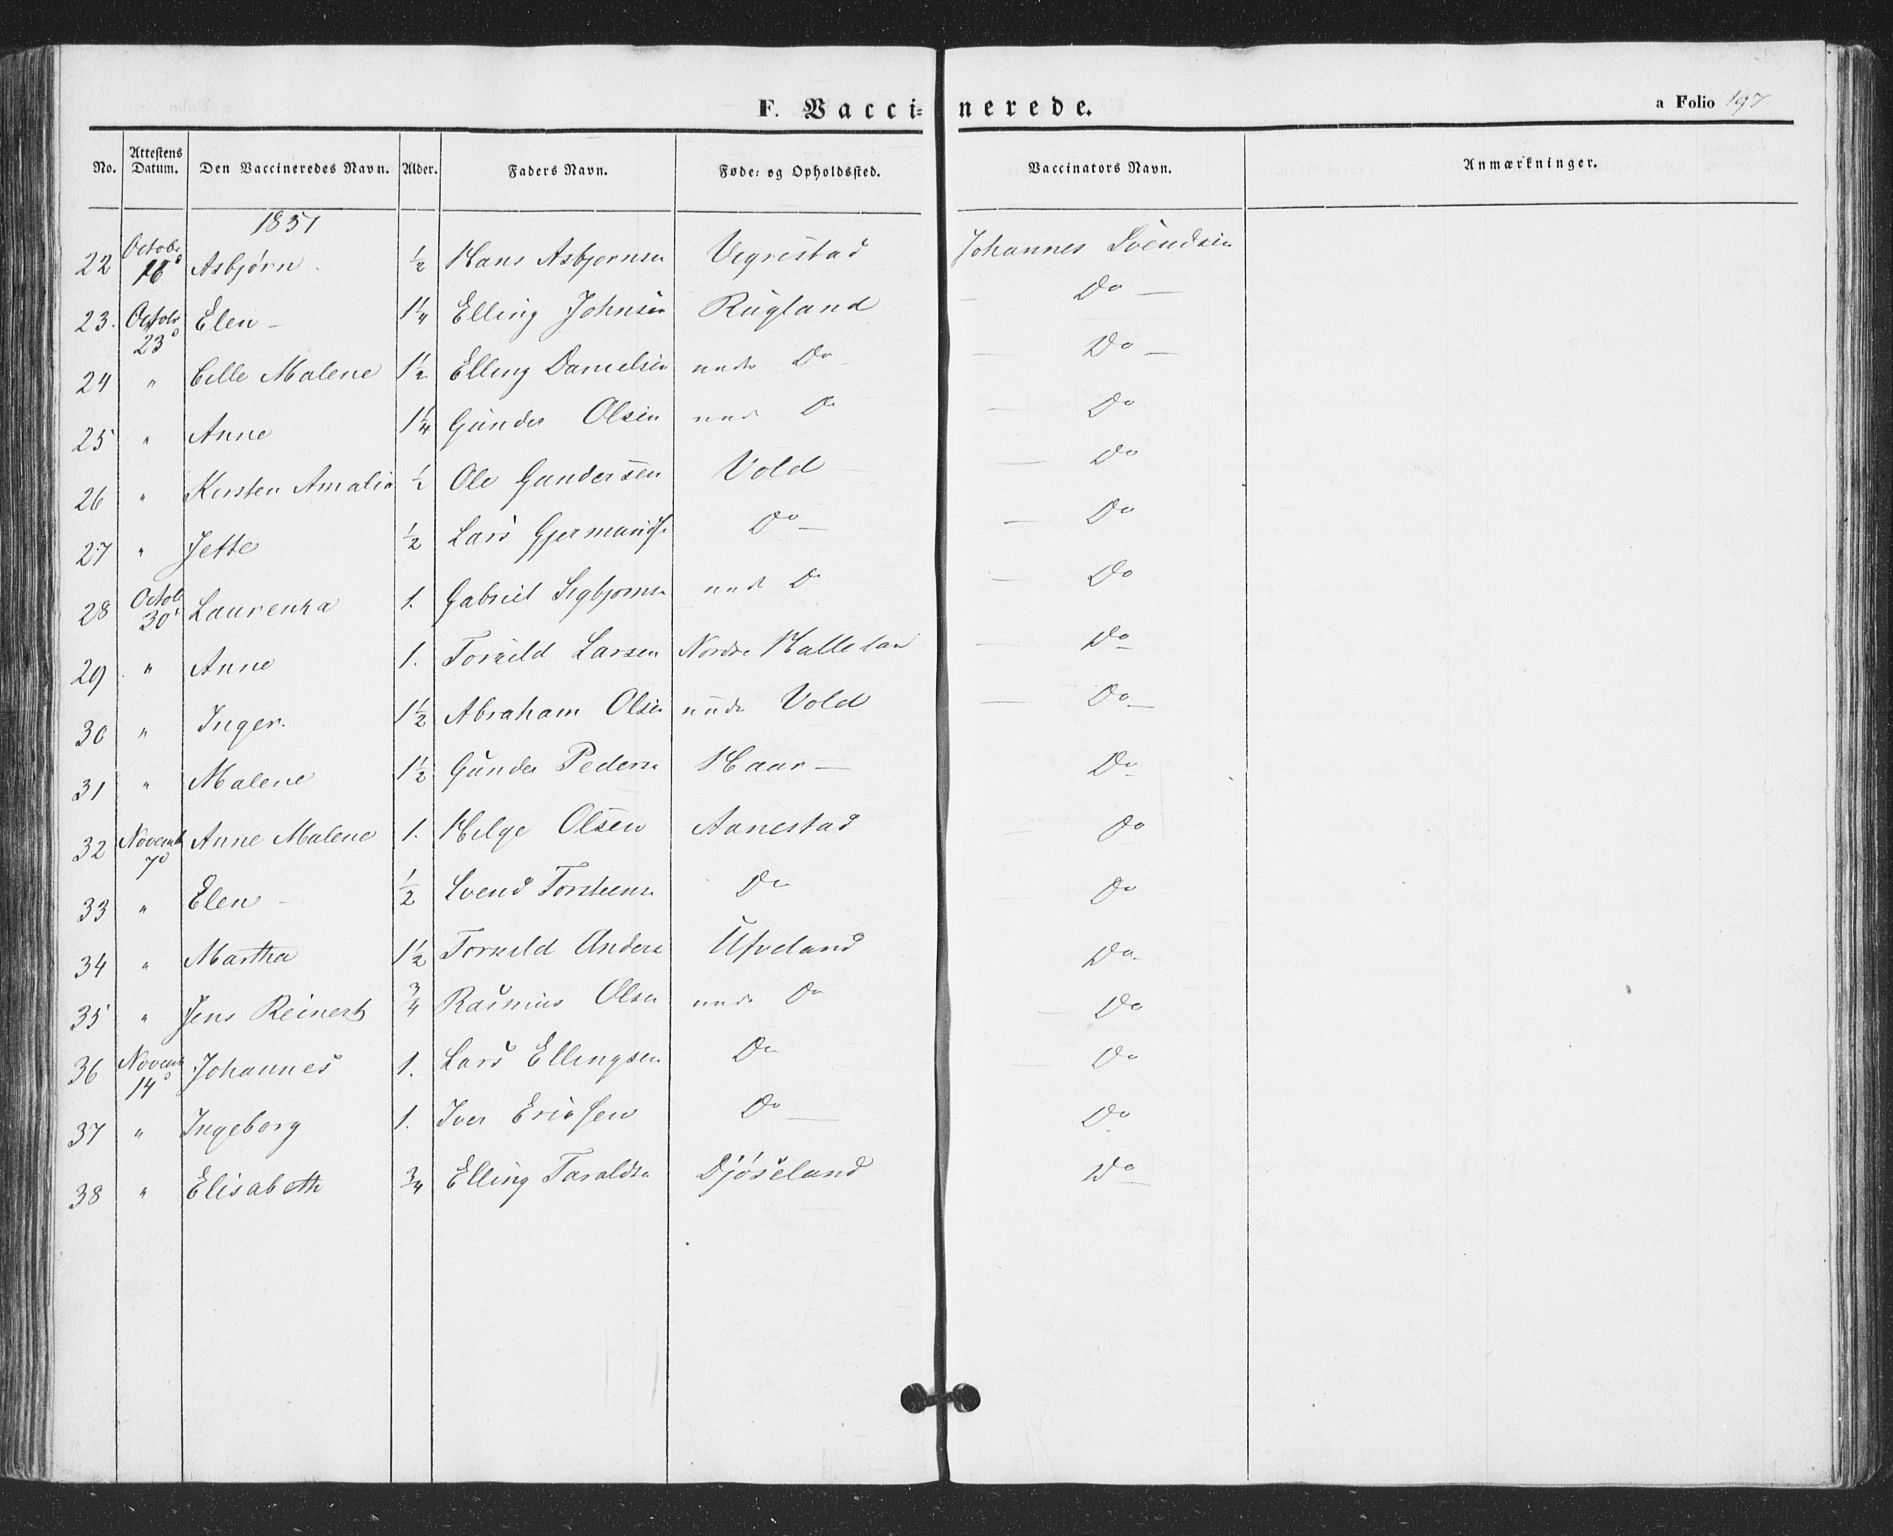 F. Vaccinerede.
a Folio 197
No. Attestens Datum. Den Vaccineredes Navn. Alder. Faders Navn. Føde- og Opholdssted. Vaccinators Navn. Anmærkninger.
1851
22 Octobr 16 Asbjørn ½ Hans Asbjornsen Vigrestad Johannes Svendsen
23. Octobr 23 Elen 1¼ Elling Johnsen Rugland Do
24 " Malene 1½ Elling Danielsen under Do Do
25 " Anne 1¼ Gunder Olsen under Do Do
26 " Kirsten Amalia ½ Ole Gundersen Vold Do
27 " Jette ½ Lars Do Do
28 Octob 30 Laurentza 1. Gabriel Sigbjornsen under Do Do
29 " Anne 1. Torkild Larsen Nordre Do
30 " Inger. 1½ Abraham Olsen under Vold Do
31 " Malene 1½ Gunder Peders Haar Do
32 Novemb 7 Anne Malene 1. Helge Olsen Aanestad Do
33 " Elen ½ Svend Torsteens Do Do
34 " Martha 1½ Torkild Anders Ufveland Do
35 " Jens Reinert ¾ Rasmus Olsen under Do Do
36 Novemb 14 Johannes 1. Lars Ellingsen Do Do
37 " Ingeborg 1. Iver Ericksen Do Do
38 " Elisabeth ¾ Elling Taralds Djøseland Do